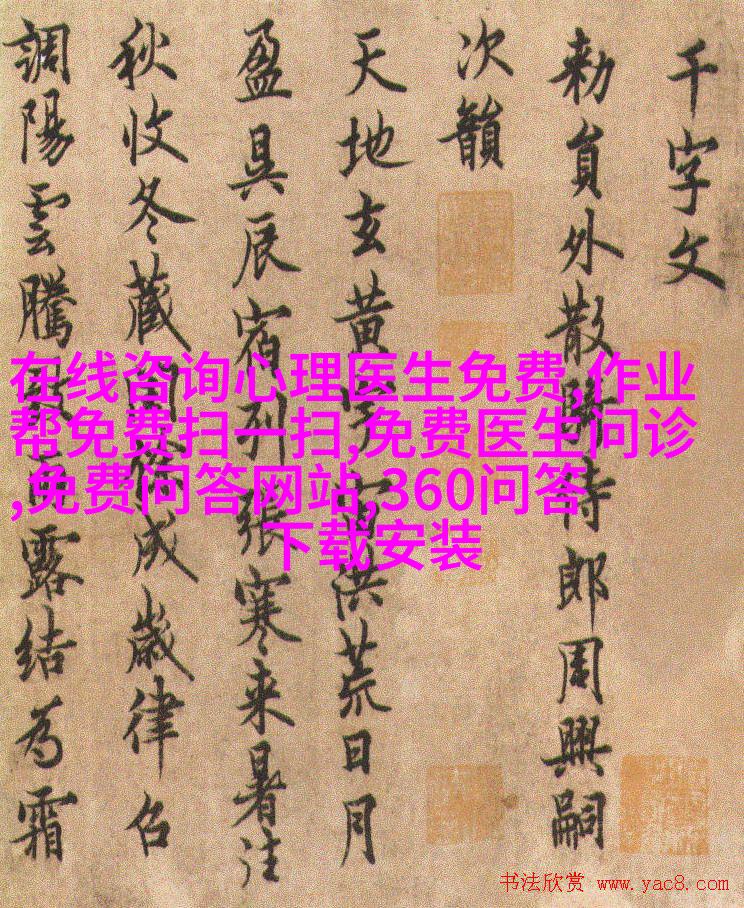 千字文
勑員外散騎侍郎周興嗣
次韻
天地玄黃宇宙洪荒日月
盈昃辰宿列張寒来暑往
秋收冬藏閏餘成歲律召
調陽雲騰致雨露結為霜
在线咨询心理医生免费,作业
帮免费扫一扫,免费医生问诊
,免费问答网站,360问答
下载安装
书法欣赏 www.yac8.com